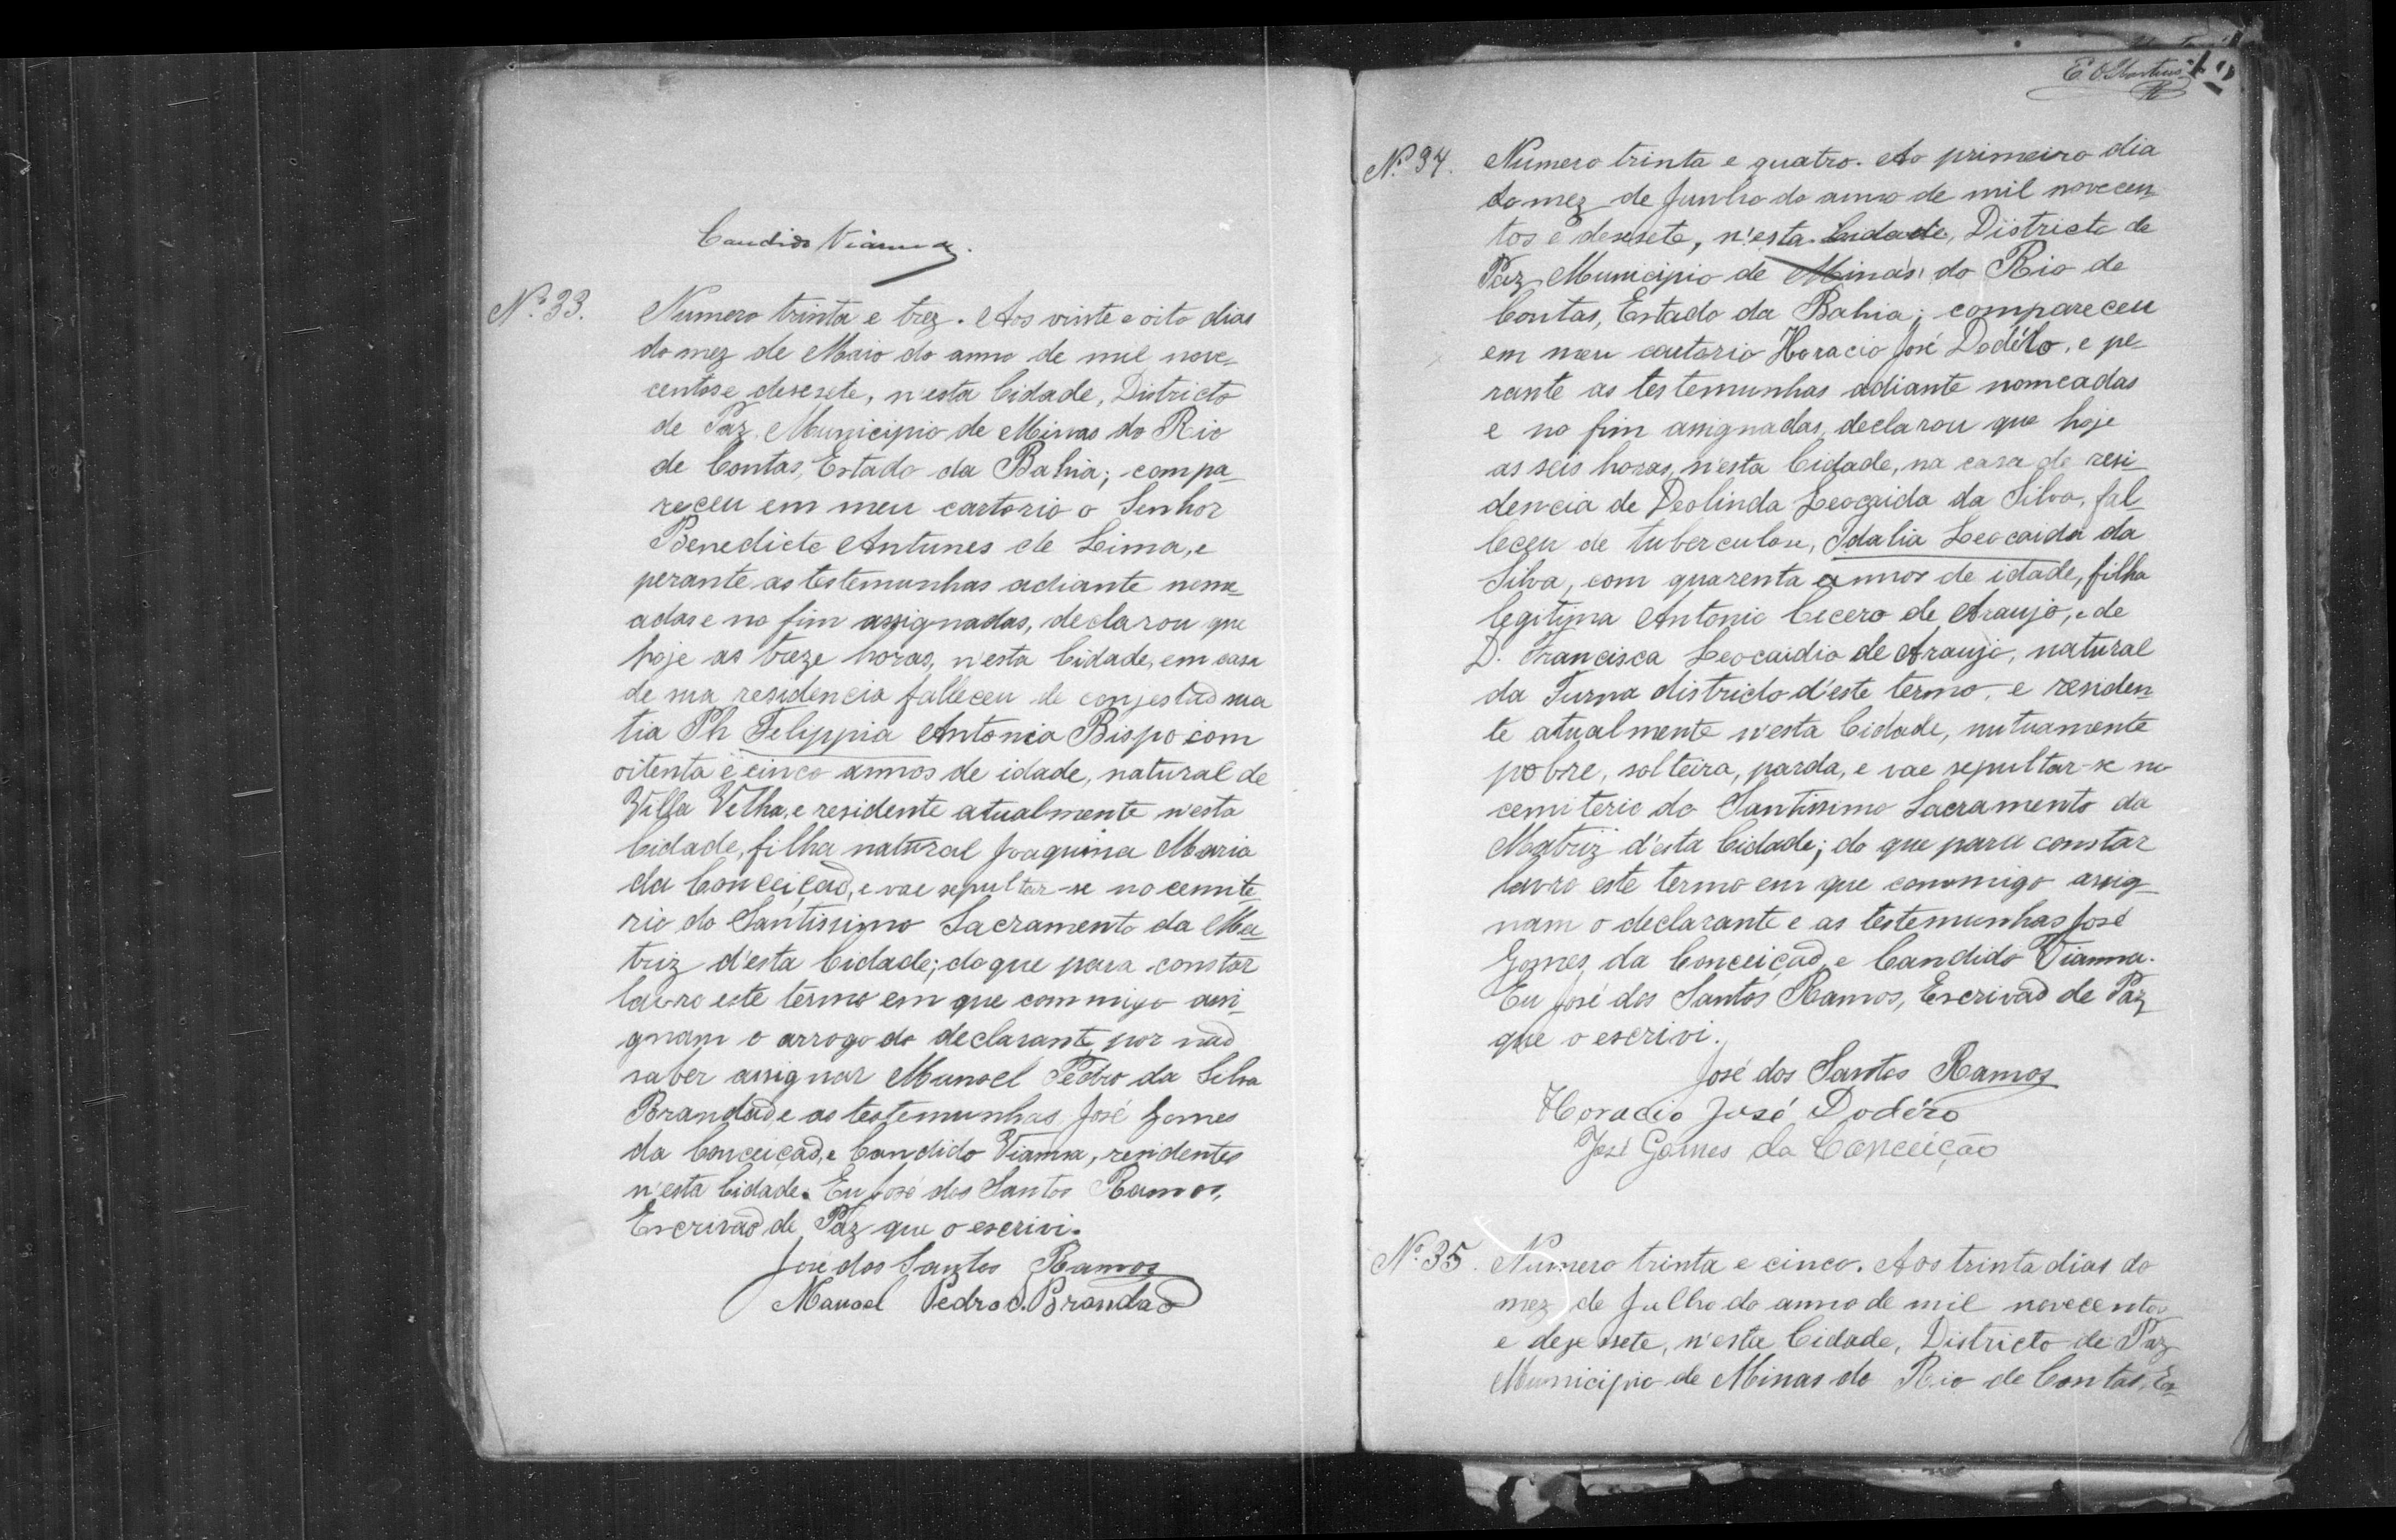 Candido Vianna.
Nº 33.
Numero trinta e trez. Aos vinte e oito dias
do mez de Maio do anno de mil nove-
centos e desesete, n'esta Cidade, Districto
de Paz Municipio de Minas do Rio
de Contas, Estado da Bahia; compa-
receu em meu cartorio o Senhor
Benedicto Antunes de Lima, e
perante as testemunhas adiante nome-
adas e no fim assignadas, declarou que
hoje as treze horas, n'esta Cidade, em casa
de sua residencia falleceu de conjestão sua
tia Ph Felippia Antonia Bispo com
oitenta e cinco annos de idade, natural de
Villa Velha, e residente atualmente n'esta
Cidade, filha natural Joaquina Maria
da Conceição, e vae sepultar-se no cemite-
rio do Santissimo Sacramento da Ma-
triz d'esta Cidade; do que para constar
lavro este termo em que commigo assi-
gnam o arrogo do declarante por não
saber assignar Manoel Pedro da Silva
Brandão e as testemunhas José Gomes
da Conceição, e Candido Vianna, residentes
n'esta Cidade. Eu José dos Santos Ramos,
Escrivão de Paz que o escrivi.
José dos Santos Ramos
Manoel Pedro S. Brandão
Nº 34.
Numero trinta e quatro. Ao primeiro dia
do mez de Junho do anno de mil novecen-
tos e desesete, n'esta Cidade, Districto de
Paz Municipio de Minas do Rio de
Contas, Estado da Bahia; compareceu
em meu cartorio Horacio José Dodéro, e pe-
rante as testemunhas adiante nomeadas
e no fim assignadas, declarou que hoje
as seis horas, n'esta Cidade, na casa de resi-
dencia de Deolinda Leocaida da Silva, fal-
leceu de tuberculose, Idalia Leocaida da
Silva, com quarenta annos de idade, filha
legitima Antonio Cicero de Araujo, e de
D. Francisca Leocaidia de Araujo, natural
da Furna districto d'este termo, e residen-
te atualmente n'esta Cidade, nutuamente
pobre, solteira, parda, e vae sepultar-se no
cemiterio do Santissimo Sacramento da
Matriz d'esta Cidade; do que para constar
lavro este termo em que commigo assig-
nam o declarante e as testemunhas José
Gomes da Conceição, e Candido Vianna.
Eu José dos Santos Ramos, Escrivão de Paz
que o escrivi.
José dos Santos Ramos
Horacio José Dodéro
José Gomes da Conceição
Nº 35.
Numero trinta e cinco. Aos trinta dias do
mez de Julho do anno de mil novecentos
e desesete, n'esta Cidade, Districto de Paz
Municipio de Minas do Rio de Contas, Es-